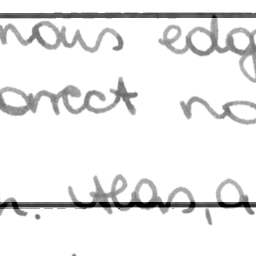 nous edg
orrect no
n. Weas, a